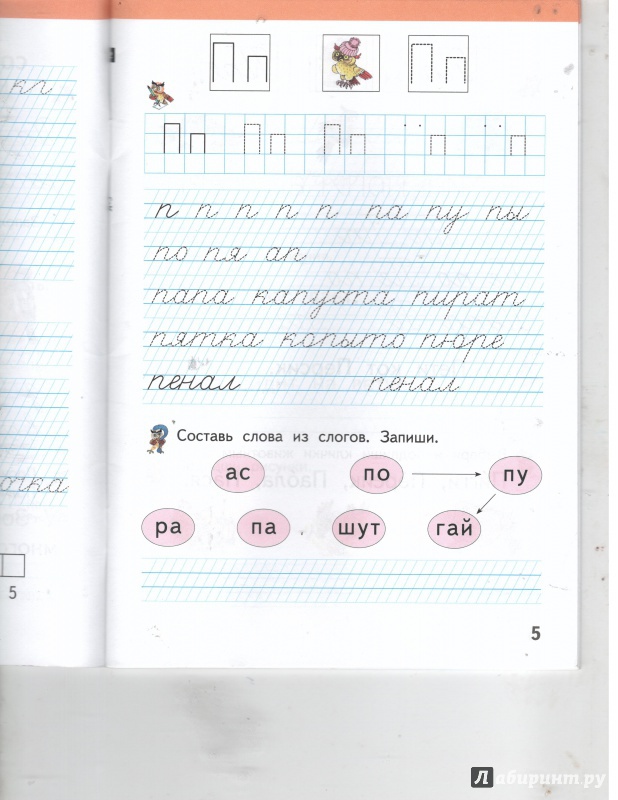 кг
Пп
Пп
Пп Пп Пп п п
п п п п п па пу пы
по пя ап
папа капуста пират
пятка копыто пюре
пенал пенал
Составь слова из слогов. Запиши.
ас по пу
ра па шут гай
5
5
Лабиринт.ру